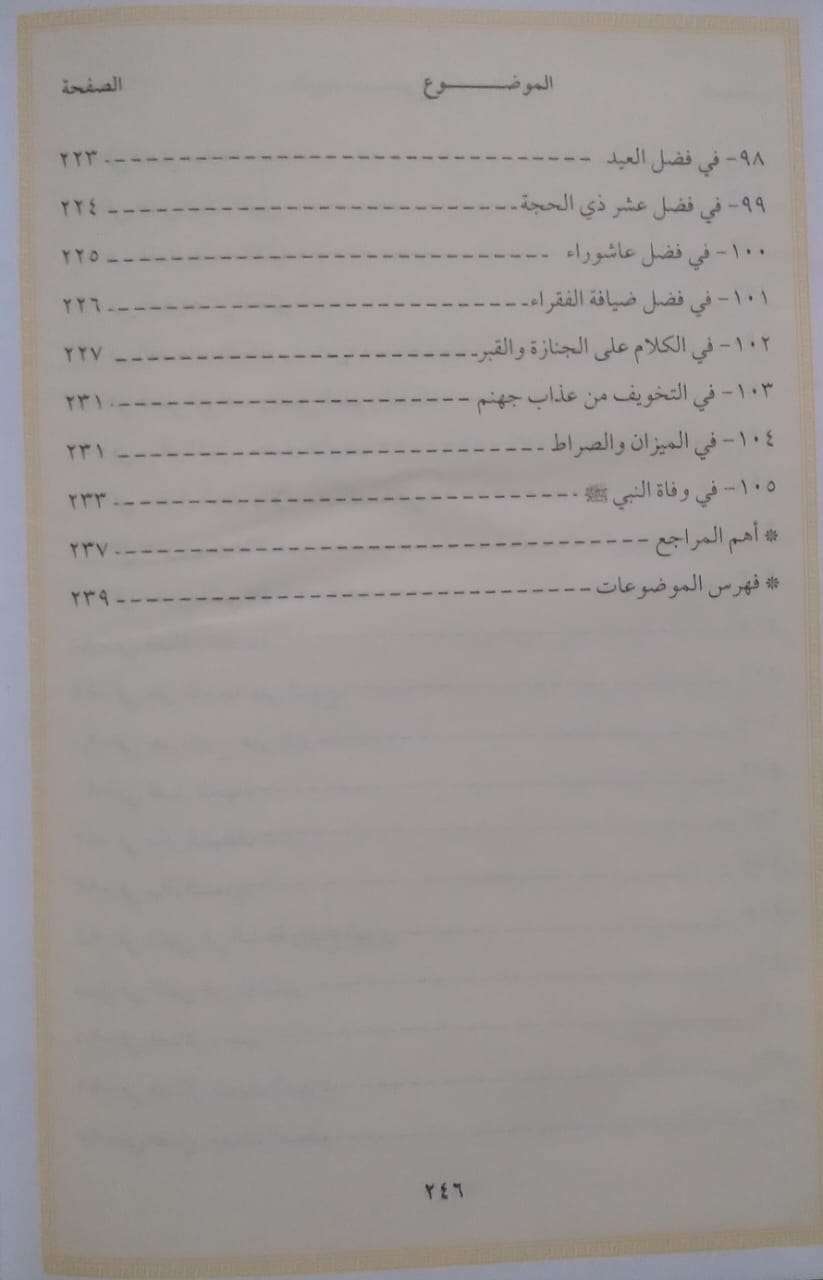 الموضـــــــوع الصفحة
٩٨- في فضل العيد ------------------------------- ٢٢٣
٩٩- في فضل عشر ذي الحجة -------------------------- ٢٢٤
١٠٠- في فضل عاشوراء ---------------------------- ٢٢٥
١٠١- في فضل ضيافة الفقراء --------------------------- ٢٢٦
١٠٢- في الكلام على الجنازة والقبر ----------------------- ٢٢٧
١٠٣- في التخويف من عذاب جهنم ----------------------- ٢٣١
١٠٤- في الميزان والصراط --------------------------- ٢٣١
١٠٥- في وفاة النبي ﷺ ------------------------------ ٢٣٣
* أهم المراجع ---------------------------------- ٢٣٧
* فهرس الموضوعات ------------------------------ ٢٣٩
٢٤٦